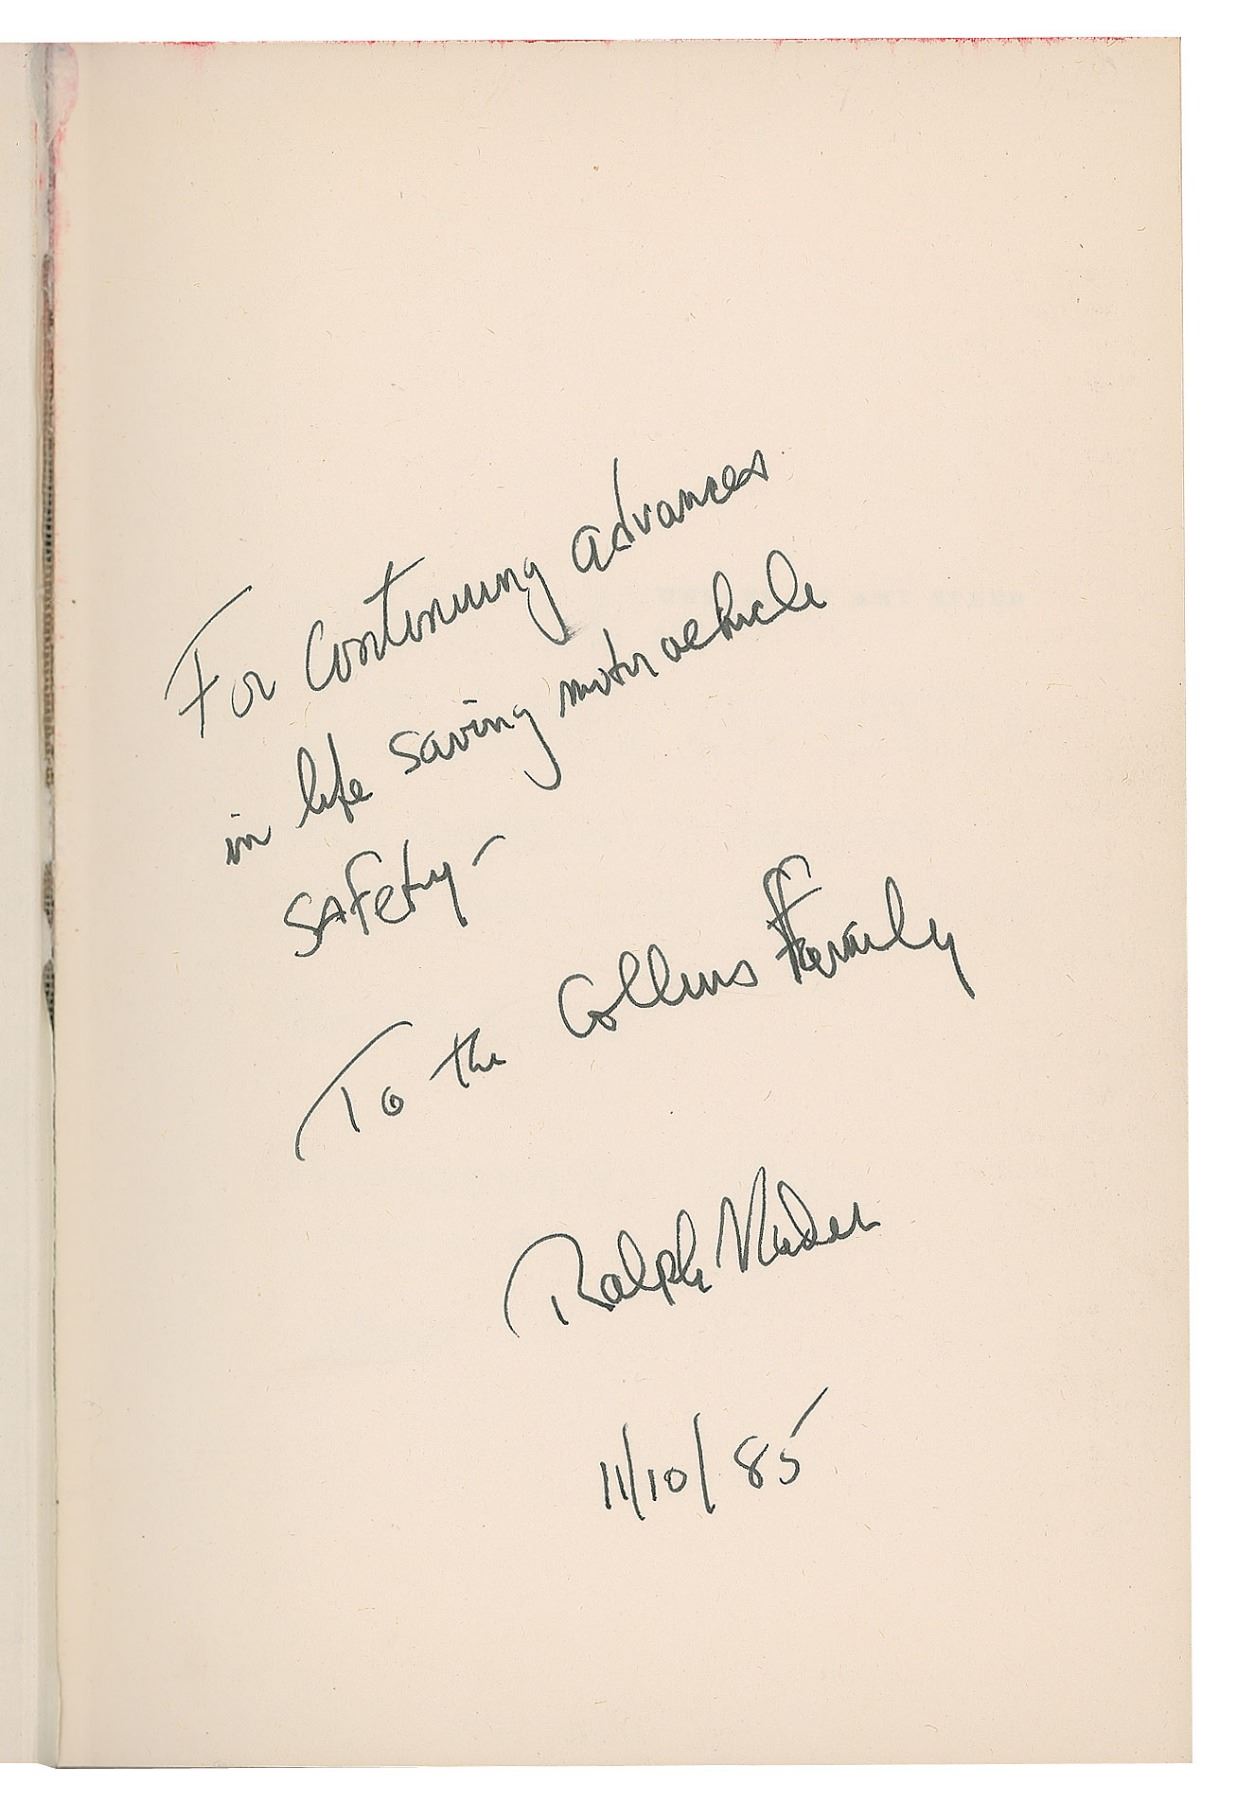 For Continuing advances
in life saving motor vehicle
safety-
To the Collins Family
Ralph Nader
11/10/85